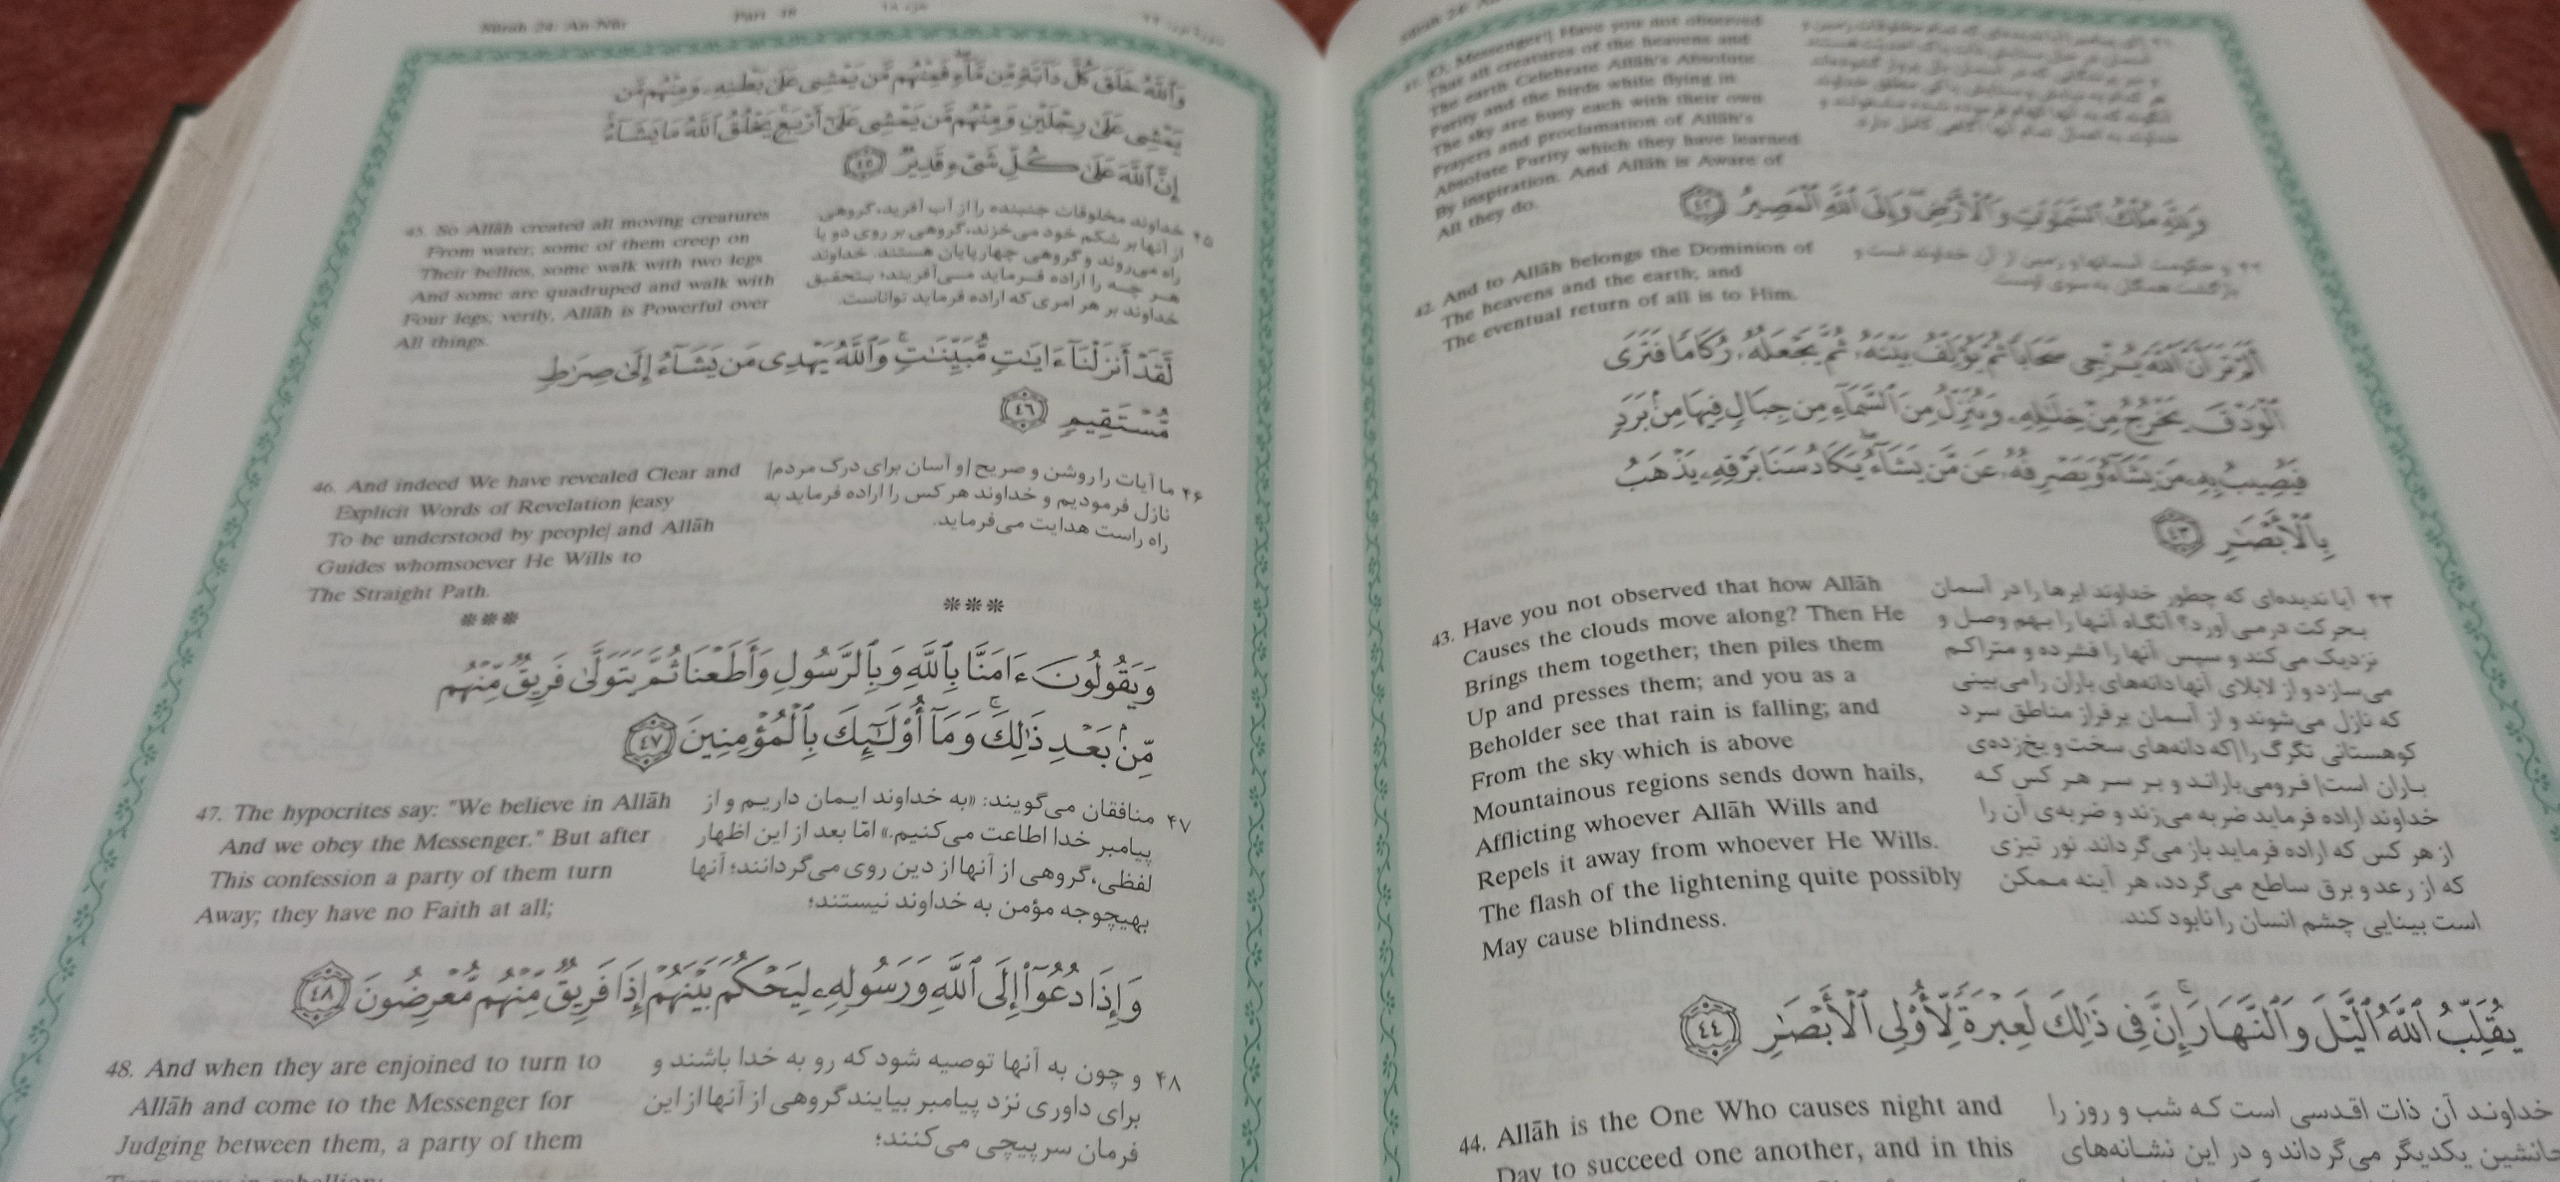 41. [O, Messenger!] Have you not observed
That all creatures of the heavens and
The earth Celebrate Allāh's Absolute
Purity and the birds while flying in
The sky are busy each with their own
Prayers and proclamation of Allāh's
Absolute Purity which they have learned
By inspiration. And Allāh is Aware of
All they do.
وَلِلَّهِ مُلْكُ ٱلسَّمَٰوَٰتِ وَٱلْأَرْضِ وَإِلَى ٱللَّهِ ٱلْمَصِيرُ ٤٢
42. And to Allāh belongs the Dominion of
The heavens and the earth; and
The eventual return of all is to Him.
۴۲ و حکومت آسمانها و زمین از آن خداوند است و
بازگشت همگان به سوی اوست
أَلَمْ تَرَ أَنَّ ٱللَّهَ يُزْجِى سَحَابًا ثُمَّ يُؤَلِّفُ بَيْنَهُۥ ثُمَّ يَجْعَلُهُۥ رُكَامًا فَتَرَى
ٱلْوَدْقَ يَخْرُجُ مِنْ خِلَٰلِهِۦ وَيُنَزِّلُ مِنَ ٱلسَّمَآءِ مِن جِبَالٍ فِيهَا مِنۢ بَرَدٍ
فَيُصِيبُ بِهِۦ مَن يَشَآءُ وَيَصْرِفُهُۥ عَن مَّن يَشَآءُ يَكَادُ سَنَا بَرْقِهِۦ يَذْهَبُ
بِٱلْأَبْصَٰرِ ٤٣
43. Have you not observed that how Allāh
Causes the clouds move along? Then He
Brings them together; then piles them
Up and presses them; and you as a
Beholder see that rain is falling; and
From the sky which is above
Mountainous regions sends down hails,
Afflicting whoever Allāh Wills and
Repels it away from whoever He Wills.
The flash of the lightening quite possibly
May cause blindness.
۴۳ آیا ندیده‌ای که چطور خداوند ابرها را در آسمان
بحرکت در می‌آورد؟ آنگاه آنها را بهم وصل و
نزدیک می‌کند و سپس آنها را فشرده و متراکم
می‌سازد و از لابلای آنها دانه‌های باران را می‌بینی
که نازل می‌شوند و از آسمان بر فراز مناطق سرد
کوهستانی تگرگ را [که دانه‌های سخت و یخ‌زده‌ی
باران است] فرو می‌باراند و بر سر هر کس که
خداوند اراده فرماید ضربه می‌زند و ضربه‌ی آن را
از هر کس که اراده فرماید باز می‌گرداند. نور تیزی
که از رعد و برق ساطع می‌گردد، هر آینه ممکن
است بینایی چشم انسان را نابود کند.
يُقَلِّبُ ٱللَّهُ ٱلَّيْلَ وَٱلنَّهَارَ إِنَّ فِى ذَٰلِكَ لَعِبْرَةً لِّأُو۟لِى ٱلْأَبْصَٰرِ ٤٤
44. Allāh is the One Who causes night and
Day to succeed one another, and in this
خداوند آن ذات اقدسی است که شب و روز را
جانشین یکدیگر می‌گرداند و در این نشانه‌های
Sūrah 24: An-Nūr
Part 18
وَٱللَّهُ خَلَقَ كُلَّ دَآبَّةٍ مِّن مَّآءٍ فَمِنْهُم مَّن يَمْشِى عَلَىٰ بَطْنِهِۦ وَمِنْهُم مَّن
يَمْشِى عَلَىٰ رِجْلَيْنِ وَمِنْهُم مَّن يَمْشِى عَلَىٰٓ أَرْبَعٍ يَخْلُقُ ٱللَّهُ مَا يَشَآءُ
إِنَّ ٱللَّهَ عَلَىٰ كُلِّ شَىْءٍ قَدِيرٌ ٤٥
45. So Allāh created all moving creatures
From water; some of them creep on
Their bellies, some walk with two legs
And some are quadruped and walk with
Four legs; verily, Allāh is Powerful over
All things.
۴۵ خداوند مخلوقات جنبنده را از آب آفرید، گروهی
از آنها بر شکم خود می‌خزند، گروهی بر روی دو پا
راه می‌روند و گروهی چهارپایان هستند. خداوند
هر چه را اراده فرماید می‌آفریند؛ بتحقیق
خداوند بر هر امری که اراده فرماید تواناست.
لَّقَدْ أَنزَلْنَآ ءَايَٰتٍ مُّبَيِّنَٰتٍ وَٱللَّهُ يَهْدِى مَن يَشَآءُ إِلَىٰ صِرَٰطٍ
مُّسْتَقِيمٍ ٤٦
46. And indeed We have revealed Clear and
Explicit Words of Revelation [easy
To be understood by people] and Allāh
Guides whomsoever He Wills to
The Straight Path.
***
۴۶ ما آیات را روشن و صریح [و آسان برای درک مردم]
نازل فرمودیم و خداوند هر کس را اراده فرماید به
راه راست هدایت می‌فرماید.
***
وَيَقُولُونَ ءَامَنَّا بِٱللَّهِ وَبِٱلرَّسُولِ وَأَطَعْنَا ثُمَّ يَتَوَلَّىٰ فَرِيقٌ مِّنْهُم
مِّنۢ بَعْدِ ذَٰلِكَ وَمَآ أُو۟لَٰٓئِكَ بِٱلْمُؤْمِنِينَ ٤٧
47. The hypocrites say: "We believe in Allāh
And we obey the Messenger." But after
This confession a party of them turn
Away; they have no Faith at all;
۴۷ منافقان می‌گویند: «به خداوند ایمان داریم و از
پیامبر خدا اطاعت می‌کنیم.» امّا بعد از این اظهار
لفظی، گروهی از آنها از دین روی می‌گردانند؛ آنها
بهیچوجه مؤمن به خداوند نیستند؛
وَإِذَا دُعُوٓا۟ إِلَى ٱللَّهِ وَرَسُولِهِۦ لِيَحْكُمَ بَيْنَهُمْ إِذَا فَرِيقٌ مِّنْهُم مُّعْرِضُونَ ٤٨
48. And when they are enjoined to turn to
Allāh and come to the Messenger for
Judging between them, a party of them
۴۸ و چون به آنها توصیه شود که رو به خدا باشند و
برای داوری نزد پیامبر بیایند گروهی از آنها از این
فرمان سرپیچی می‌کنند؛